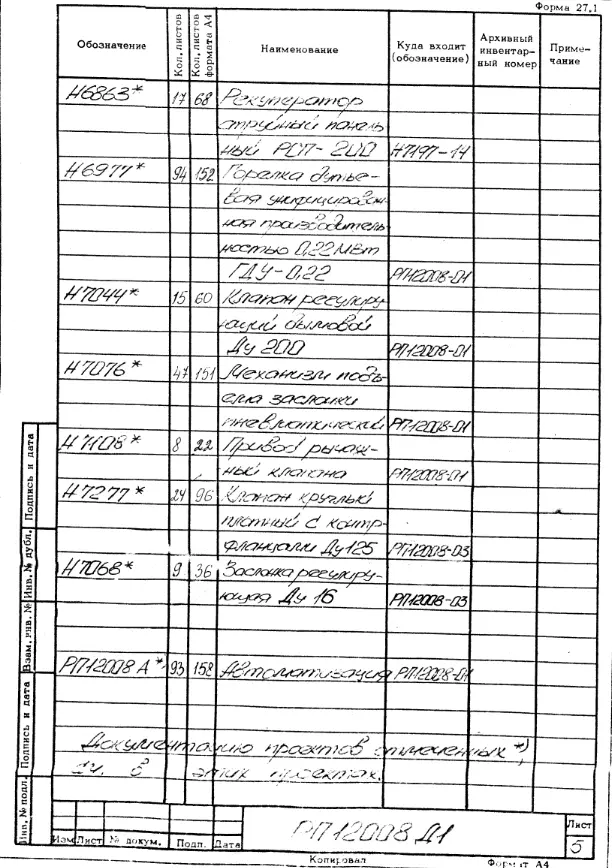 Форма 27.1
Обозначение Кол. листов Кол. листов формата А4 Наименование Куда входит (обозначение) Архивный инвентарный номер Примечание
Н6863* 17 68 Рекуператор
струйный панель-
ный РСП-200 Н7197-14
Н6977* 94 152 Горелка дутье-
вая унифицирован-
ная производитель-
ностью 0,22 МВт
ГДУ-0,22 РП12008-01
Н7044* 15 60 Клапан регулиру-
ющий дымовой
Ду 200 РП12008-01
Н7076* 47 151 Механизм подъ-
ема заслонки
пневматический РП12008-01
Н7108* 8 22 Привод рычаж-
ный клапана РП12008-01
Н7277* 24 96 Клапан круглый
плотный с контр-
фланцами Ду125 РП12008-03
Н7068* 9 36 Заслонка регулиру-
ющая Ду 16 РП12008-03
РП12008 А* 93 158 Автоматизация РП12008-01
Документацию проектов отмеченных *),
см. в этих проектах.
Подпись и дата
Инв. № дубл.
Взам. инв. №
Подпись и дата
Инв. № подл.
Изм Лист № докум. Подп. Дата
РП12008 Д1
Лист
5
Копировал Формат А4